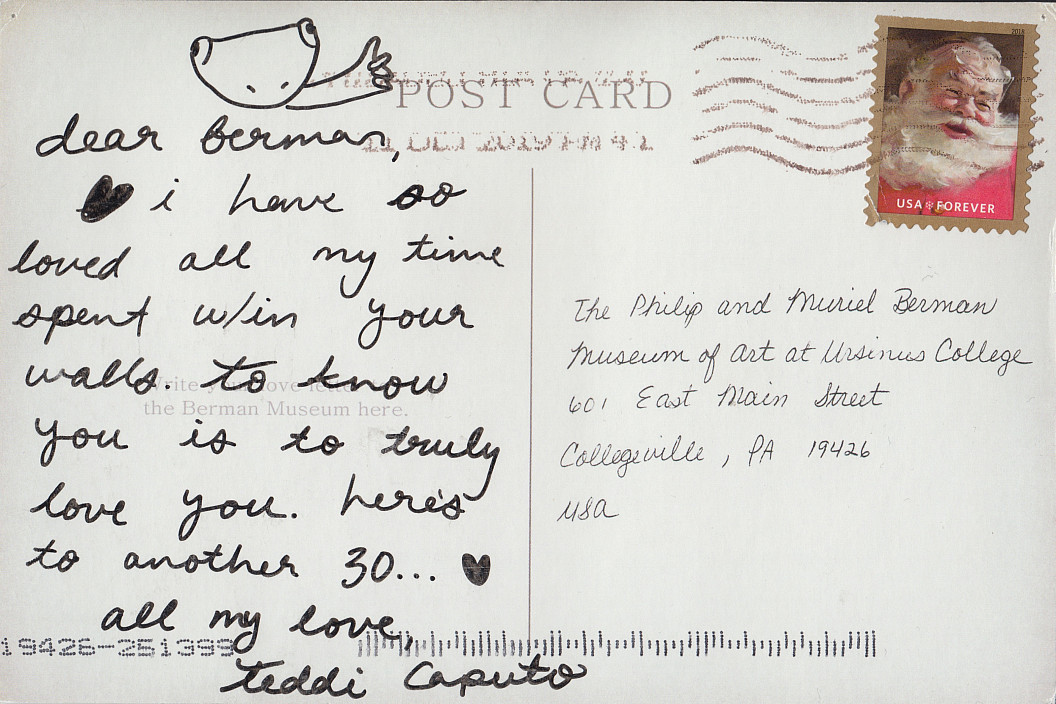 POST CARD
11 OCT 2019 PM 4 L
2018
USA FOREVER
dear berman,
i have so
loved all my time
spent w/in your
walls. to know
you is to truly
love you. here's
to another 30...
all my love,
teddi caputo
Write your love letter
the Berman Museum here.
The Philip and Muriel Berman
Museum of Art at Ursinus College
601 East Main Street
Collegeville, PA 19426
USA
19426-251399